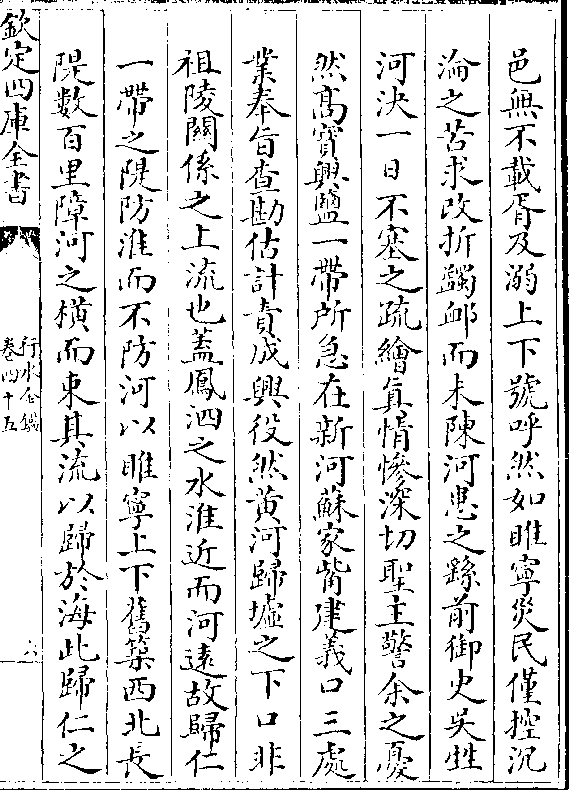 邑無不載胥及溺上下號呼然如睢寧災民僅控沉
淪之苦求改折蠲䘏而未陳河患之繇前御史吳甡
河決一日不塞之疏繪真情慘深切聖主警余之憂
然高寶興鹽一帶所急在新河蘇家嘴建義口三處
業奉旨查勘估計責成興役然黄河歸墟之下口非
祖陵關係之上流也蓋鳳泗之水淮近而河遠故歸仁
一帶之隄防淮而不防河以睢寧上下舊築西北長
隄數百里障河之横而東其流以歸於海此歸仁之
欽定四庫全書
行水金鑑
卷四十五
六